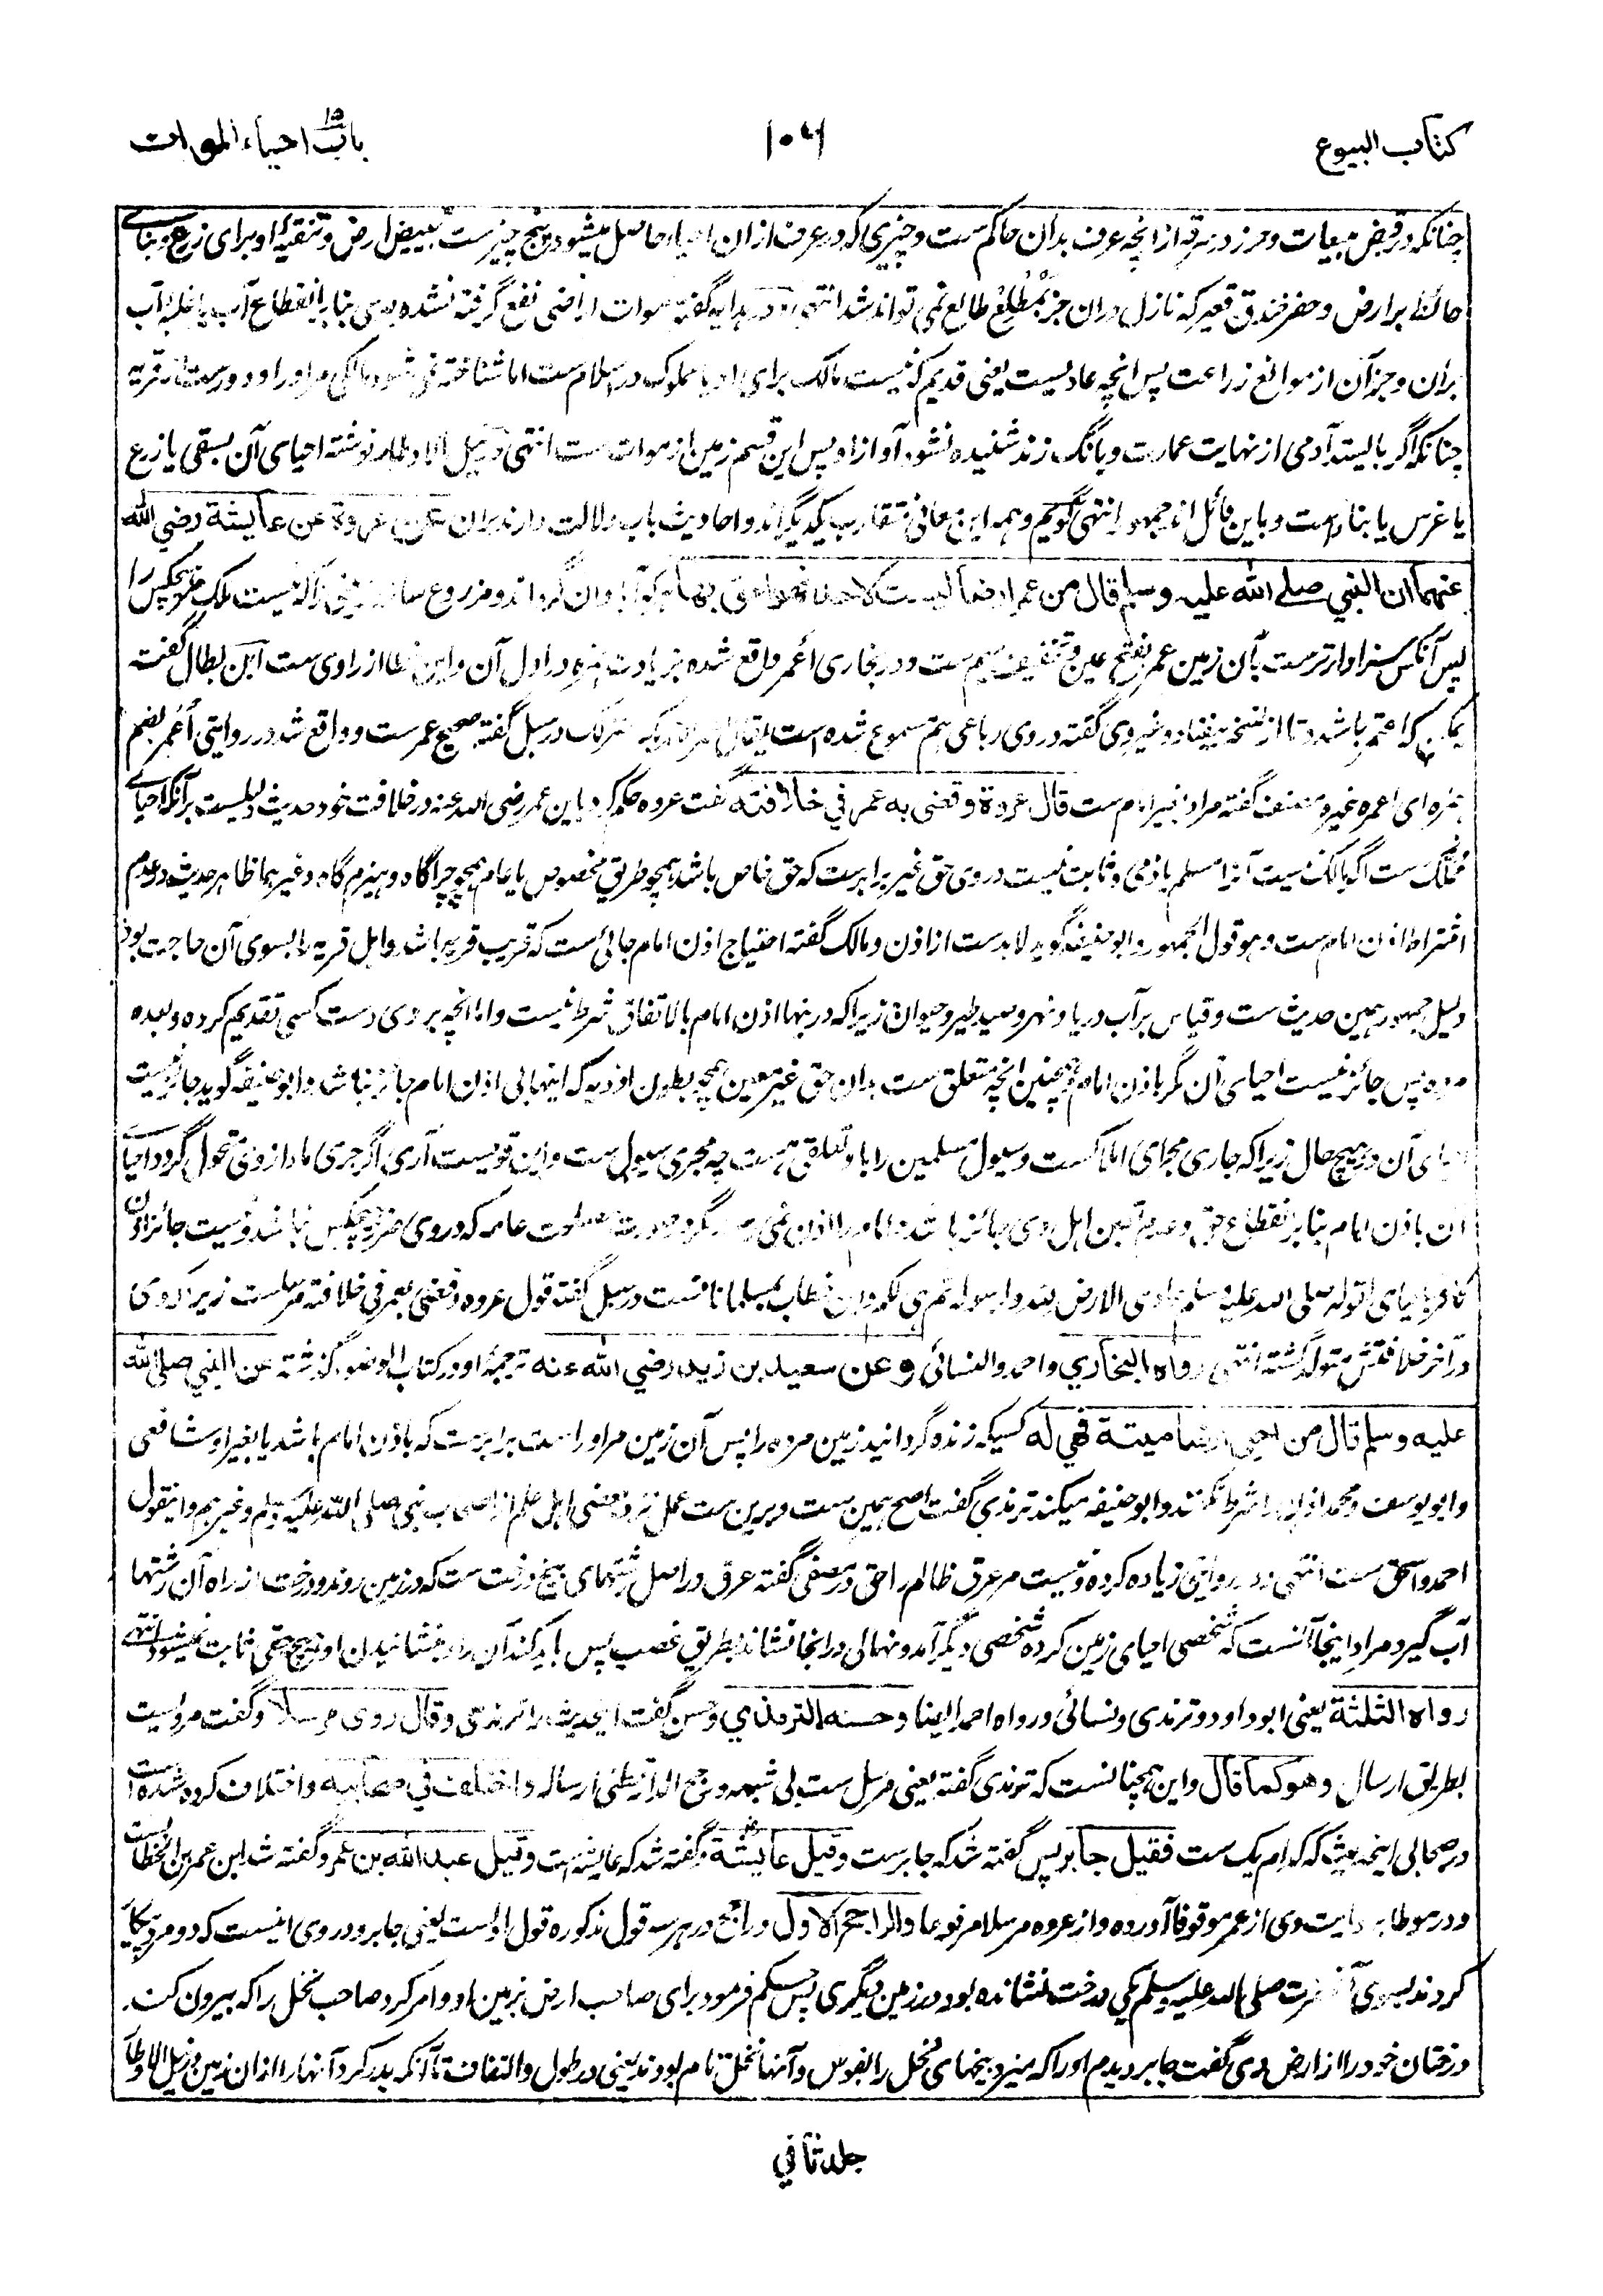 كتاب البيوع
۱۰۶
باب احياء الموات
چنانکه در قبض مبیعات و حرز در سرقه از انچه عرف بدان حاکم ست و چیزی که در عرف ازان احیاء حاصل میشود پنج چیز ست تبییض ارض و تنقیهٔ او برای زرع و بنای
حائط بر ارض و حفر خندق قعیر که نازل دران جز بمطلع طالع نمی تواند شد انتهی و در هدایه گفته موات اراضی نفع گرفته نشده بوی بنا بر انقطاع آب یا غلبهٔ آب
بران و جز آن از موانع زراعت پس انچه عادیست یعنی قدیم که نیست مالک برای او یا مملوک در اسلام ست اما شناخته نمی شود مالکی مر او را و دور ست از قریه
چنانکه اگر بایستد آدمی از نهایت عمارت و بانگ زند شنیده نشود آواز او پس این قسم زمین از موات ست انتهی و در نیل الاوطار نوشته احیای آن بسقی یا زرع
یا غرس یا بنا ست و باین قائل اند جمهور انتهی گویم و همه این معانی متقارب یکدیگر اند و احادیث باب دلالت دارند بران عن عروة عن عايشة رضي الله
عنهما ان النبي صلے الله عليه وسلم قال من عمر ارضا ليست لاحد فهو احق بها هر که آبادان گرداند و مزروع سازد زمینی را که نیست ملک مر هیچکس را
پس آنکس سزاوارتر ست بآن زمین عمر بفتح عین و تخفیف میم ست و در بخاری اعمر واقع شده بزیادت همزه در اول آن و این خطا از راوی ست ابن بطال گفته
یمکن که اعتمر باشد و تا از نسخه بیفتاد و غیر وی گفته در وی رباعی هم مسموع شده است یقال در سبل گفته صحیح عمر ست و واقع شد در روایتی اعمر بضم
همزه ای اعمره غیره و مصنف گفته مراد بغیر امام ست قال عروة وقضى به عمر في خلافته گفت عروه حکم کرد باین عمر رضی الله عنه در خلافت خود حدیث دلیلست بر آنکه احیای
مملک ست اگر مالک نیست آنرا مسلم یا ذمی و ثابت نیست در وی حق غیر برابر ست که حق خاص باشد همچو طریق مخصوص یا عام همچو چراگاه و هیزم گاه و غیرهما ظاهر حدیث عدم
اشتراط اذن امام ست و هو قول الجمهور و ابو حنیفه گوید لابد ست از اذن و مالک گفته احتیاج اذن امام جائی ست که قریب قریه باشد و اهل قریه را بسوی آن حاجت بود
دلیل جمهور همین حدیث ست و قیاس بر آب دریا و نهر و صید طیر و حیوان زیرا که در ینها اذن امام بالاتفاق شرط نیست و اما انچه بر وی دست کسی تقدیم کرده و بعده
مرده پس جائز نیست احیای آن مگر باذن امام و همچنین انچه متعلق ست بدان حق غیر معین همچو بطون اودیه که اینها بی اذن امام جائز نباشد و ابو حنیفه گوید جائز نیست
احیای آن در هیچ حال زیرا که جاری مجرای املاکست و سیول مسلمین را باو تعلقی هست چه مجری سیول ست و این قویست آری اگر جری ماء از وی تحول گردد احیای
آن باذن امام بنا بر انقطاع حق و عدم تعین اهل وی جائز باشد و امام را اذن نمی رسد مگر در صورت مصلحت عامه که در وی ضرر هیچکس نباشد و نیست جائز اذن
کافر باحیای لقوله صلی الله علیه وسلم عادی الارض لله و لرسوله ثم هی لکم و این خطاب بمسلمانانست در سبل گفته قول عروه و قضی به عمر فی خلافته مرسلست زیرا که وی
در آخر خلافتش متولد گشته انتهی رواه البخاري و احمد و النسائی وعن سعيد بن زيد رضي الله عنه ترجمهٔ او در کتاب الوضوء گذشته عن النبي صلى الله
عليه وسلم قال من احيى ارضا ميتة فهي له کسیکه زنده گردانید زمین مرده را پس آن زمین مر او را ست برابر ست که باذن امام باشد یا بغیر او شافعی
و ابو یوسف و محمد اذن را شرط نکنند و ابو حنیفه میکند ترمذی گفت اصح همین ست و برین ست عمل نزد بعضی اهل علم از اصحاب نبی صلی الله علیه وسلم و غیرهم و اینقول
احمد و اسحق ست انتهی و در روایتی زیاده کرده و نیست مر عرق ظالم را حق در مصفی گفته عرق در اصل رشتهای بیخ درخت ست که در زمین روند و درخت از راه آن رشتها
آب گیرد مراد اینجا آنست که شخصی احیای زمین کرده شخصی دیگر آمد و نهالی در انجا نشاند بطریق غصب پس باید کند آن را و بنشانیدن او هیچ حقی ثابت نمیشود انتهی
رواه الثلثة یعنی ابو داود و ترمذی و نسائی و رواه احمد ایضا وحسنه الترمذي و حسن گفت ایحدیث را ترمذی وقال روى مرسلا و گفت مرویست
بطریق ارسال وهو كما قال و این همچنانست که ترمذی گفته یعنی مرسل ست بی شبهه و رجح الدارقطنی ارساله واختلف في صحابيه و اختلاف کرده شده است
در صحابی اینحدیث که کدام یک ست فقيل جابر پس گفته شد که جابر ست وقيل عايشة و گفته شد که عایشه است وقيل عبد الله بن عمر و گفته شد ابن عمر بن الخطاب ست
و در موطا بروایت وی از عمر موقوفا آورده و از عروه مرسلا مرفوعا والراجح الاول و راجح در هر سه قول مذکوره قول اولست یعنی جابر و در وی اینست که دو مرد
کردند بسوی آنحضرت صلی الله علیه وسلم یکی درخت نشانده بود در زمین دیگری پس حکم فرمود برای صاحب ارض بزمین او و امر کرد صاحب نخل را که بیرون کند
درختان خود را از ارض وی گفت جابر دیدم او را که میزد بیخهای نخل را بفوس و آنها نخل تام بودند یعنی در طول و التفاف تا آنکه بدر کرد آنها را ازان زمین و در نیل الاوطار
جلد ثاني